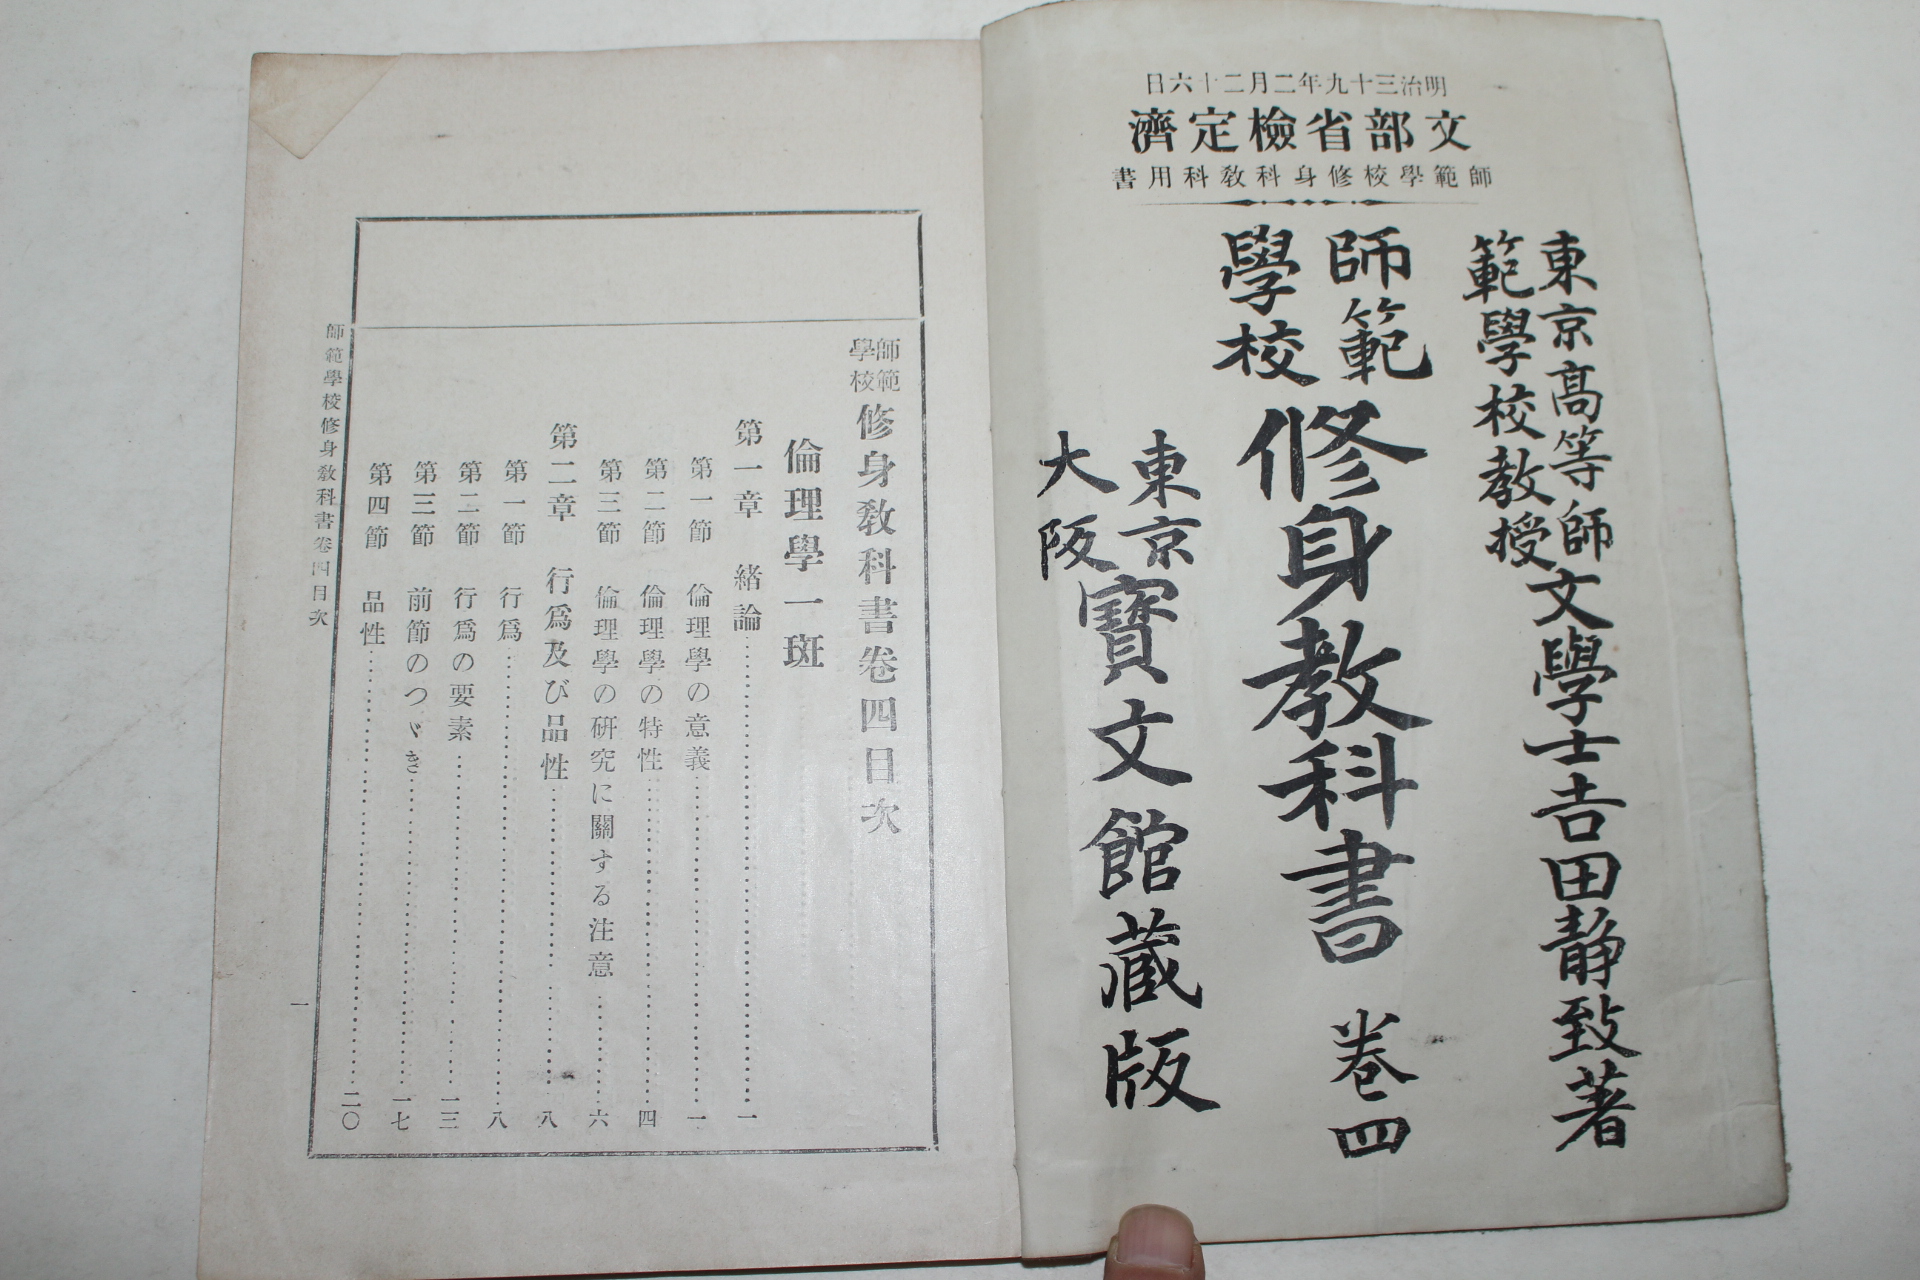 明治三十九年二月二十六日
文部省檢定濟
師範學校修身科敎科用書
東京高等師
範學校教授
文學士吉田靜致著
師範
學校
修身教科書 巻四
東京
大阪
寶文館蔵版
師範
學校
修身敎科書卷四目次
倫理學一斑
第一章 緒論……一
第一節 倫理學の意義……一
第二節 倫理學の特性……四
第三節 倫理學の研究に關する注意……六
第二章 行爲及び品性……八
第一節 行爲……八
第二節 行爲の要素……一三
第三節 前節のつゞき……一七
第四節 品性……二〇
師範學校修身敎科書卷四目次
一